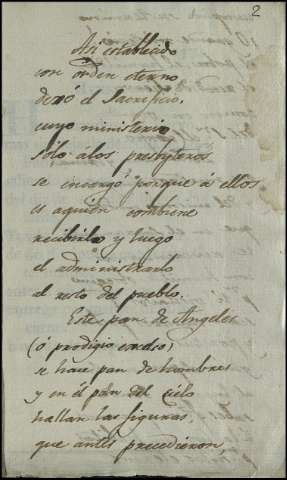 2
Asi establecido
con orden eterno
dexó el Sacrificio,
cuyo ministerio
sólo á los presbyteros
se encargó porque á ellos
es aquien combiene
recibirlo y luego
el administrarlo
al resto del pueblo.
Este pan de Angeles
(ó prodigio excelso)
se hace pan de hombres
y en él pan del cielo
hallan las figuras,
que antes precedieron,